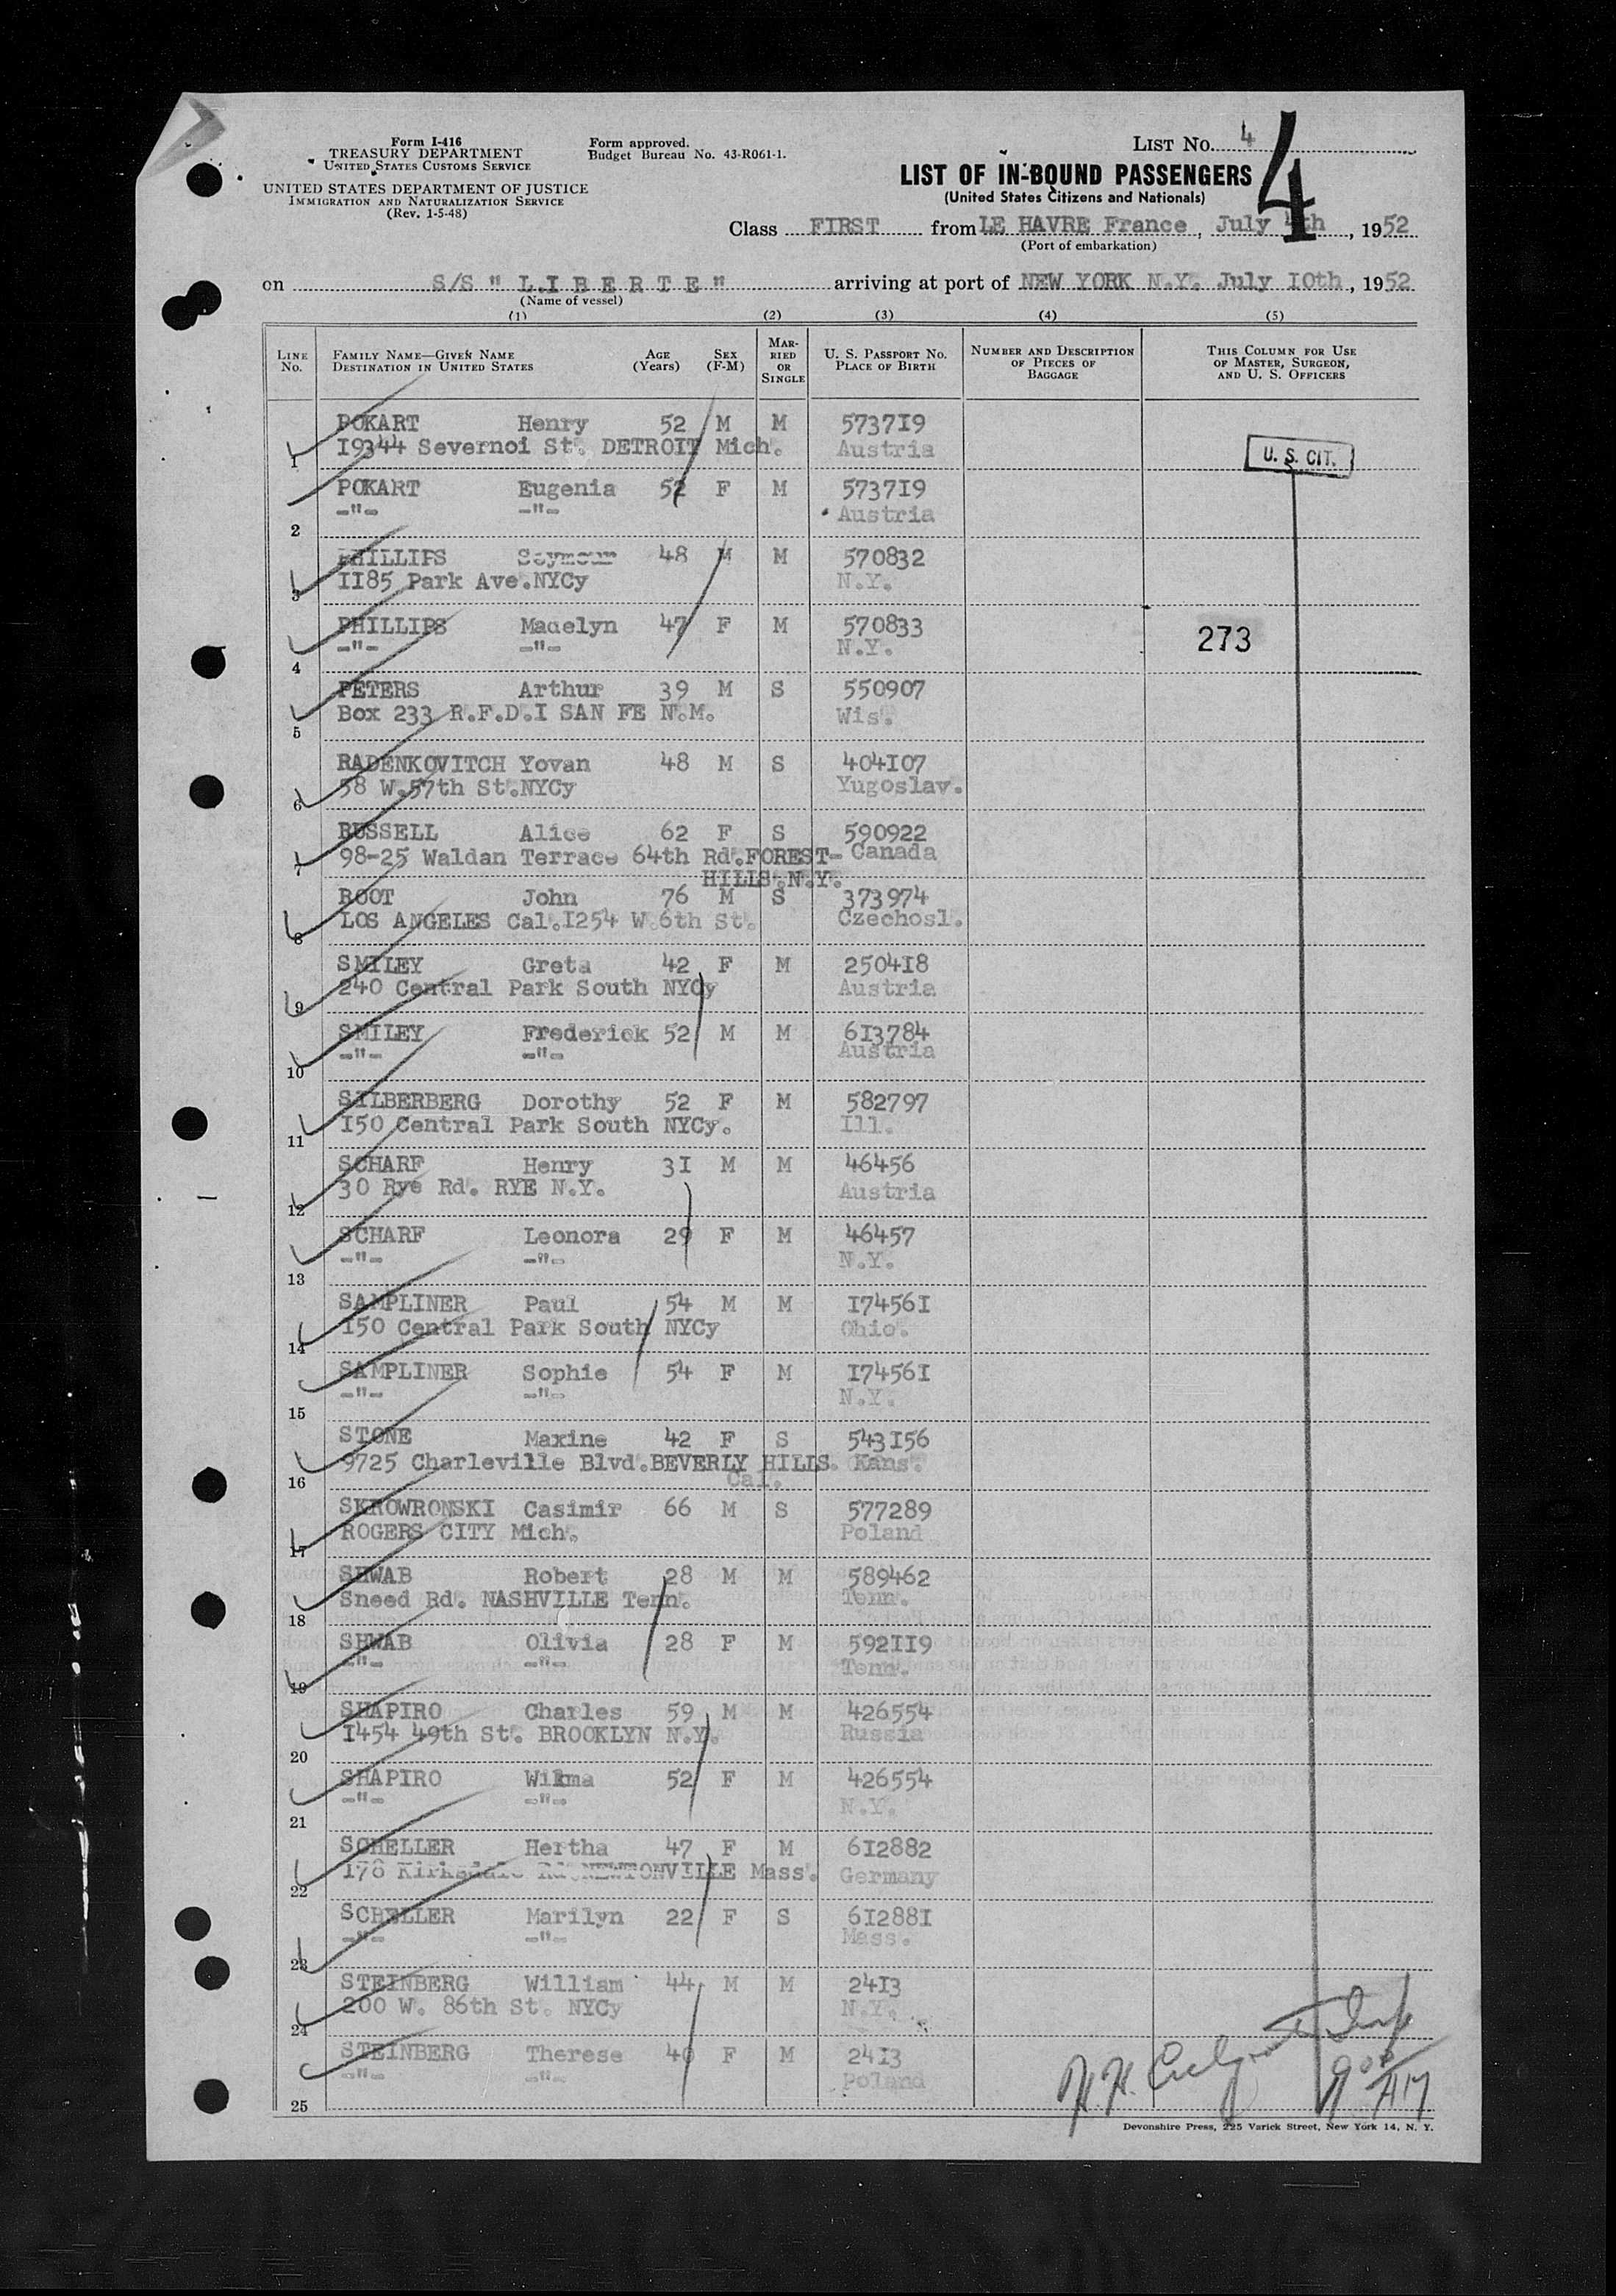 Form I-416
TREASURY DEPARTMENT
UNITED STATES CUSTOMS SERVICE
UNITED STATES DEPARTMENT OF JUSTICE
IMMIGRATION AND NATURALIZATION SERVICE
(Rev. 1-5-48)
Form approved.
Budget Bureau No. 43-R061-1.
LIST No. 4
4
LIST OF IN-BOUND PASSENGERS
(United States Citizens and Nationals)
Class FIRST from LE HAVRE France, July 4th, 1952
(Port of embarkation)
on S/S " L I B E R T E " arriving at port of NEW YORK N.Y. July IOth, 1952
(Name of vessel)
(1) (2) (3) (4) (5)
LINE No. FAMILY NAME—GIVEN NAME DESTINATION IN UNITED STATES AGE (Years) SEX (F-M) MARRIED OR SINGLE U. S. PASSPORT No. PLACE OF BIRTH NUMBER AND DESCRIPTION OF PIECES OF BAGGAGE THIS COLUMN FOR USE OF MASTER, SURGEON, AND U. S. OFFICERS
POKART Henry 52 M M 5737I9
1 I9344 Severnoi St. DETROIT Mich. Austria
U. S. CIT.
POKART Eugenia 52 F M 5737I9
-"- -"- Austria
2
PHILLIPS Seymour 48 M M 570832
3 II85 Park Ave.NYCy N.Y.
PHILLIPS Madelyn 47 F M 570833
-"- -"- N.Y.
273
4
PETERS Arthur 39 M S 550907
Box 233 R.F.D.I SAN FE N.M. Wis.
5
RADENKOVITCH Yovan 48 M S 404I07
6 58 W.57th St.NYCy Yugoslav.
RUSSELL Alice 62 F S 590922
7 98-25 Waldan Terrace 64th Rd.FOREST- Canada
HILLS.N.Y.
ROOT John 76 M S 373974
8 LOS ANGELES Cal.I254 W.6th St. Czechosl.
SMILEY Greta 42 F M 2504I8
9 240 Central Park South NYCy Austria
SMILEY Frederick 52 M M 6I3784
-"- -"- Austria
10
SILBERBERG Dorothy 52 F M 582797
11 I50 Central Park South NYCy. Ill.
SCHARF Henry 3I M M 46456
12 30 Rye Rd. RYE N.Y. Austria
SCHARF Leonora 29 F M 46457
-"- -"- N.Y.
13
SAMPLINER Paul 54 M M I7456I
14 I50 Central Park South NYCy Ohio.
SAMPLINER Sophie 54 F M I7456I
-"- -"- N.Y.
15
STONE Maxine 42 F S 543I56
9725 Charleville Blvd.BEVERLY HILLS. Kans.
16 Cal.
SKROWRONSKI Casimir 66 M S 577289
17 ROGERS CITY Mich. Poland
SHWAB Robert 28 M M 589462
18 Sneed Rd. NASHVILLE Tenn. Tenn.
SHWAB Olivia 28 F M 592II9
-"- -"- Tenn.
19
SHAPIRO Charles 59 M M 426554
I454 49th St. BROOKLYN N.Y. Russia
20
SHAPIRO Wilma 52 F M 426554
-"- -"- N.Y.
21
SCHELLER Hertha 47 F M 6I2882
178 Rd.NEWTONVILLE Mass. Germany
22
SCHELLER Marilyn 22 F S 6I288I
-"- -"- Mass.
23
STEINBERG William 44 M M 24I3
200 W. 86th St. NYCy N.Y.
24
STEINBERG Therese 40 F M 24I3
-"- -"- Poland
25
H.H.
9 00 AM
Devonshire Press, 225 Varick Street, New York 14, N. Y.